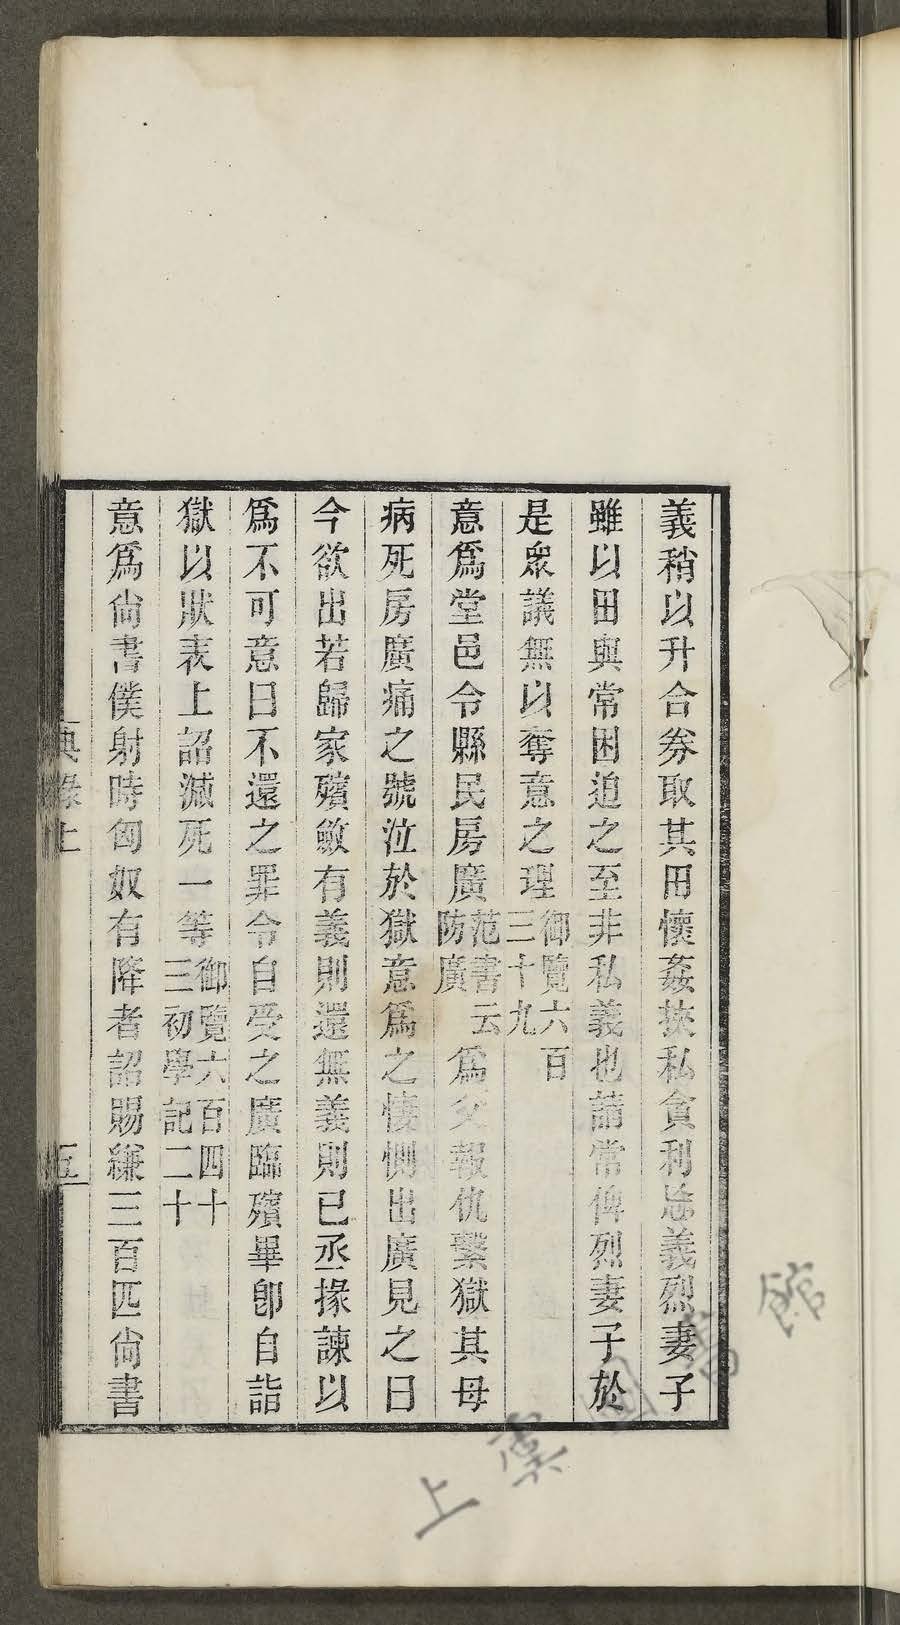 義稍以升合券取其田懷姦挾私貪利忘義烈妻子
雖以田與常困迫之至非私義也請常俾烈妻子於
是衆議無以奪意之理御覽六百三十九
意爲堂邑令縣民房廣范書云防廣爲父報仇繫獄其母
病死房廣痛之號泣於獄意爲之悽惻出廣見之曰
今欲出若歸家殯斂有義則還無義則已丞掾諫以
爲不可意曰不還之罪令自受之廣臨殯畢卽自詣
獄以狀表上詔減死一等御覽六百四十三初學記二十
意爲尙書僕射時匈奴有降者詔賜縑三百匹尙書
典錄上
五
上虞圖書館